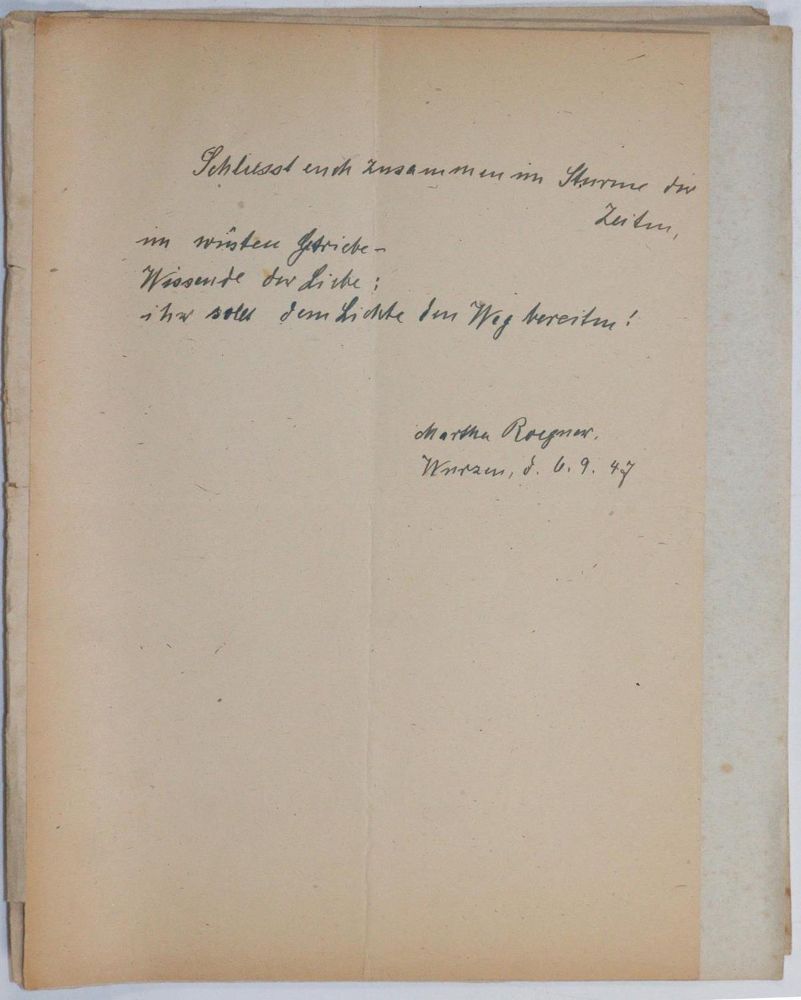 Schliesst euch zusammen im Sturme der
Zeiten,
im wüsten Getriebe-
Wissende der Liebe:
ihr sollt dem Lichte den Weg bereiten!
Martha Roegner.
Wurzen, d. 6.9.47